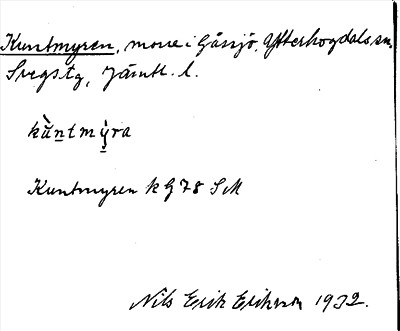 Kuntmyren, mosse i Gåssjö, Ytterhogdals sn,
Svegs tg, Jämtl. l.
kùntmỳra
Kuntmyren k G 78 SM
Nils Erik Erikson 1932.